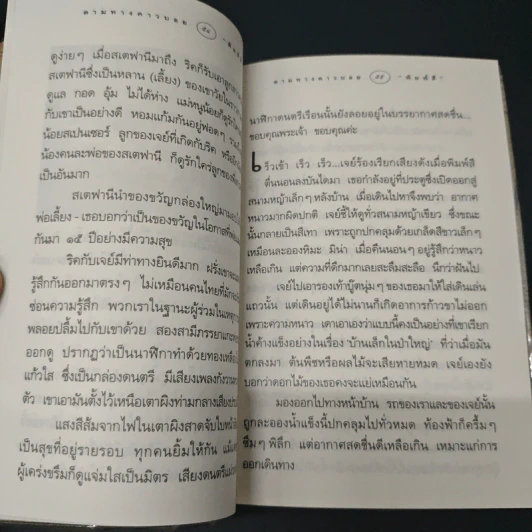 ตามหาดาวบลอย ๕๔
ดูง่ายๆ เมื่อสเตฟานีมาถึง ริคก็รับเอาลูก
สเตฟานีซึ่งเป็นหลาน (เลี้ยง) ของเขาวัย
ดูแล กอด อุ้ม ไม่ได้ห่าง แม่หนูน้อยก็
กับเขาเป็นอย่างดี หอมแก้มกันอยู่ฟอดๆ
น้อยสเปนเซอร์ ลูกของเจย์ที่เกิดกับริค
น้องคนละพ่อของสเตฟานี ก็ดูรักใคร่ลูกของพี่
เป็นอันมาก
สเตฟานีนำของขวัญกล่องใหญ่มา
พ่อเลี้ยง - เธอบอกว่าเป็นของขวัญในโอกาสที่
กันมา ๑๕ ปีอย่างมีความสุข
ริคกับเจย์มีท่าทางยินดีมาก ฝรั่ง
รู้สึกกันออกมาตรงๆ ไม่เหมือนคนไทยที่มัก
ซ่อนความรู้สึก พวกเราในฐานะผู้ร่วมในเหตุ
พลอยปลื้มไปกับเขาด้วย สองสามีภรรยา
ออกดู ปรากฏว่าเป็นนาฬิกาทำด้วยทองเหลือง
แก้วใส ซึ่งเป็นกล่องดนตรี มีเสียงเพลงกังวาน
ตัว เขาเอามันตั้งไว้เหนือเตาผิงท่ามกลางเสียง
แสงสีส้มจากไฟในเตาผิงสาดจับใบหน้า
เป็นสุขที่อยู่รายรอบ ทุกคนยิ้มให้กัน แม้
ผู้เคร่งขรึมก็ดูแจ่มใสเป็นมิตร เสียงดนตรี
๕๕
นาฬิกาดนตรีเรือนนั้นยังลอยอยู่ในบรรยากาศสดชื่น...
ขอบคุณพระเจ้า ขอบคุณค่ะ
เร็วเข้า เร็ว เร็ว...เจย์ร้องเรียกเสียงดังเมื่อพิมพ์สิ
ตื่นนอนลงบันไดมา เธอกำลังอยู่ที่ประตูซึ่งเปิดออกสู่
สนามหญ้าเล็กๆ หลังบ้าน เมื่อเดินไปหาจึงพบว่า อากาศ
หนาวมากผิดปกติ เจย์ชี้ให้ดูทั่วสนามหญ้าเขียว ซึ่งขณะ
นั้นกลายเป็นสีเทา เพราะถูกปกคลุมด้วยเกล็ดสีขาวเล็กๆ
เหมือนละอองหิมะ มิน่า เมื่อคืนนอนๆ อยู่รู้สึกว่าหนาว
เหลือเกิน แต่ความที่ดึกมากเลยสะลึมสะลือ นึกว่าฝันไป
เจย์ไปเอารองเท้าบู๊ตนุ่มๆ ของเธอมาให้ใส่เดินเล่น
แถวนั้น แต่เดินอยู่ได้ไม่นานก็เกิดอาการก้าวขาไม่ออก
เพราะความหนาว เดาเอาเองว่าแบบนี้คงเป็นอย่างที่เขาเรียก
น้ำค้างแข็งอย่างในเรื่อง 'บ้านเล็กในป่าใหญ่' ที่ว่าเมื่อมัน
ตกลงมา ต้นพืชหรือผลไม้จะเสียหายหมด เจย์เองยัง
บอกว่าดอกไม้ของเธอคงจะแย่เหมือนกัน
มองออกไปทางหน้าบ้าน รถของเราและของเจย์นั้น
ถูกละอองน้ำแข็งนี้ปกคลุมไปทั่วหมด ท้องฟ้าก็ครึ้มๆ
ซึมๆ พิลึก แต่อากาศสดชื่นดีเหลือเกิน เหมาะแก่การ
ออกเดินทาง